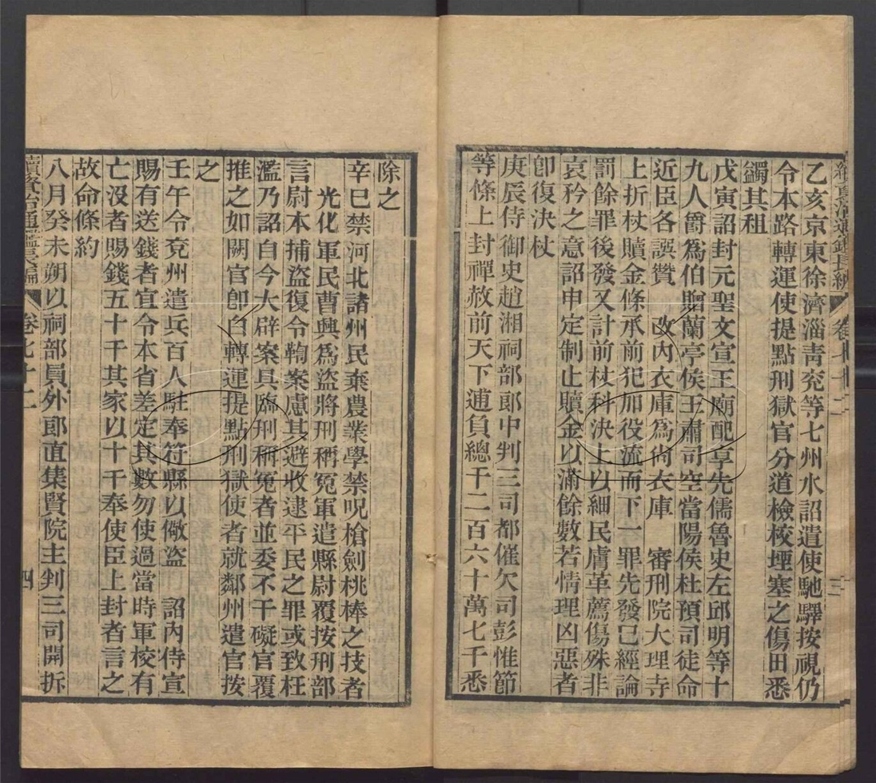 續資治通鑑長編 卷七十二 三
乙亥京東徐濟淄青兖等七州水詔遣使馳驛按視仍
令本路轉運使提點刑獄官分道檢校堙塞之傷田悉
蠲其租
戊寅詔封元聖文宣王廟配享先儒魯史左邱明等十
九人爵爲伯贈蘭亭侯王肅司空當陽侯杜預司徒命
近臣各誤贊 改內衣庫爲尙衣庫 審刑院大理寺
上折杖贖金條承前犯加役流而下一罪先發已經論
罰餘罪後發又計前杖科決上以細民膚革薦傷殊非
哀矜之意詔申定制止贖金以滿餘數若情理凶惡者
卽復決杖
庚辰侍御史趙湘祠部郎中判三司都催欠司彭惟節
等條上封禪赦前天下逋負總千二百六十萬七千悉
除之
辛巳禁河北諸州民棄農業學禁呪槍劍桃棒之技者
光化軍民曹興爲盜將刑稱冤軍遣縣尉覆按刑部
言尉本捕盜復令鞫案慮其避收逮平民之罪或致枉
濫乃詔自今大辟案具臨刑稱冤者並委不干礙官覆
推之如闕官卽白轉運提點刑獄使者就鄰州遣官按
之
壬午令兖州遣兵百人駐奉符縣以儆盜 詔內侍宣
賜有送錢者宜令本省差定其數勿使過當時軍校有
亡沒者賜錢五十千其家以十千奉使臣上封者言之
故命條約
八月癸未朔以祠部員外郎直集賢院主判三司開拆
續資治通鑑長編 卷七十二 四